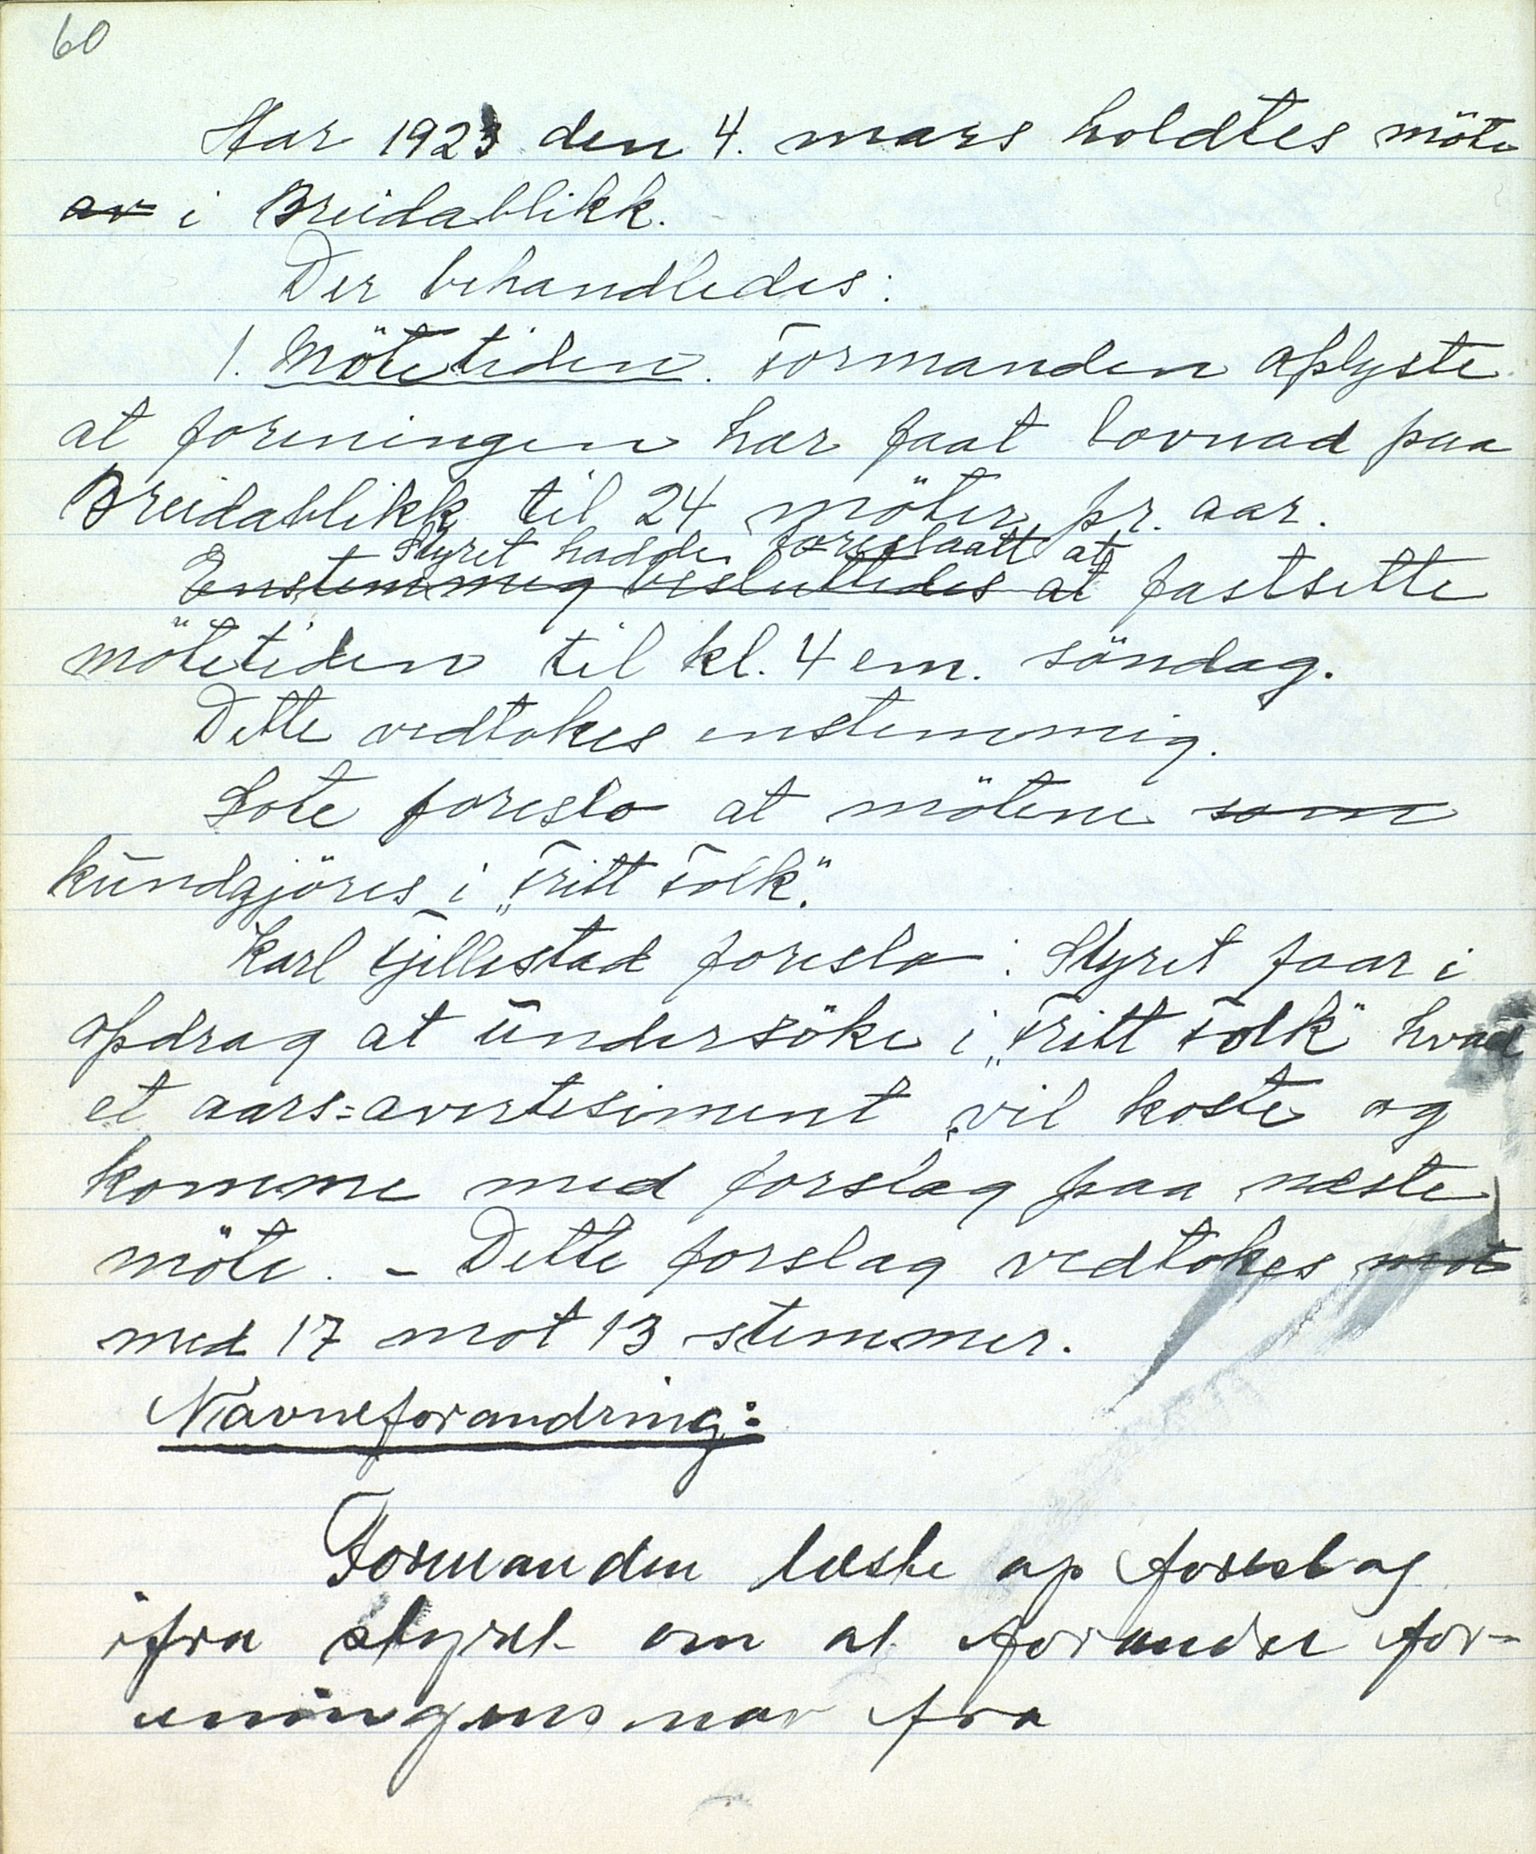 60
Aar 1923 den 4. mars holdtes möte
av i Breidablikk.
Der behandledes:
1. Mötetiden. Formanden oplyste
at foreningen har faat lovnad paa
Breidablikk til 24 möter pr. aar.
Styret hadde foreslaatt at
Enstemmig besluttedes at fastsette
mötetiden til kl. 4 em. söndag.
Dette vedtokes enstemmig.
Lote foreslo at mötene som
kundgjöres i „Fritt Folk".
Karl Fjellestad foreslo: Styret faar i
opdrag at undersöke i „Fritt Folk" hvad
et aars=avertesiment vil koste og
komme med forslag paa næste
möte. – Dette forslag vedtokes mot
med 17 mot 13 stemmer.
Navneforandring:
Formanden læste op foreslag
ifra styret om at forandre for-
eningens nav fra